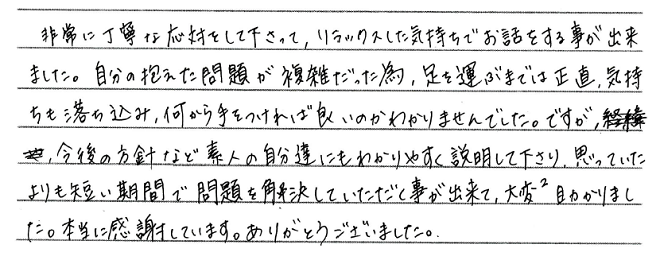 非常に丁寧な応対をして下さって、リラックスした気持ちでお話をする事が出来
ました。自分の抱えた問題が複雑だった為、足を運ぶまでは正直、気持
ちも落ち込み、何から手をつければ良いのかわかりませんでした。ですが、
、今後の方針など素人の自分達にもわかりやすく説明して下さり、思っていた
よりも短い期間で問題を解決していただく事が出来て、大変２助かりまし
た。本当に感謝しています。ありがとうございました。